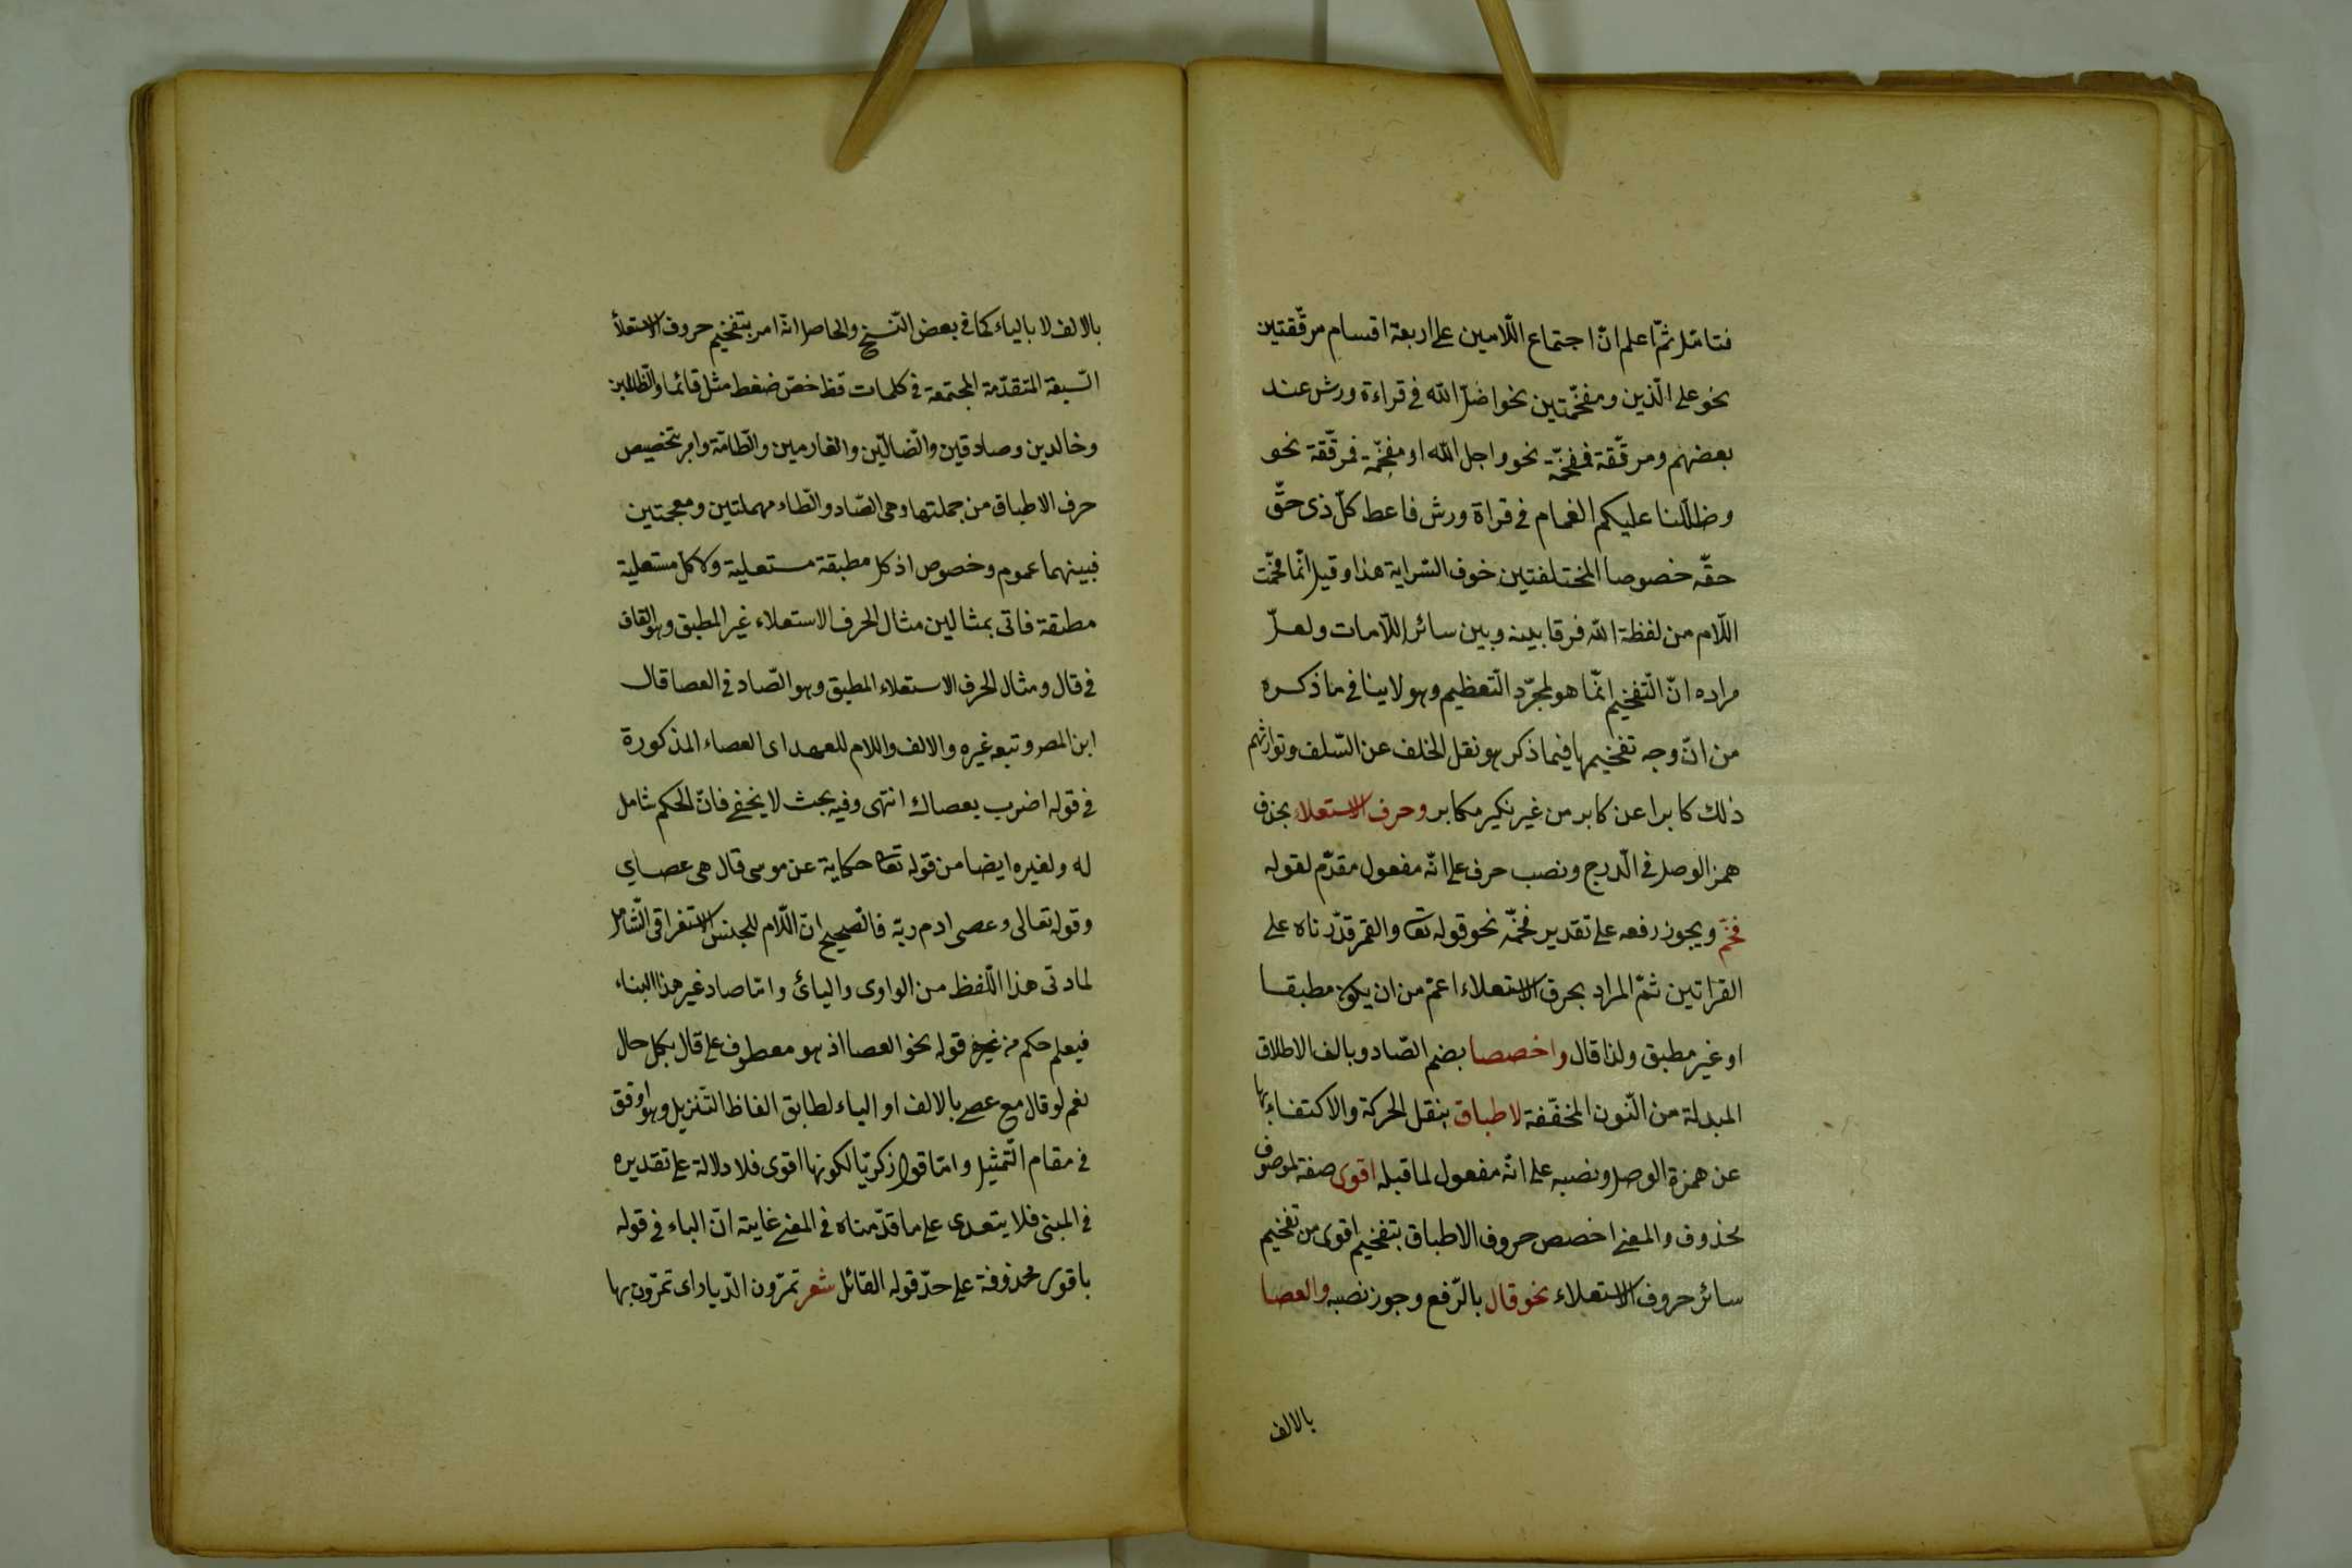 فتامّل ثمّ اعلم انّ اجتماع اللّامين على اربعة اقسام مرقّقتين
نحو على الّذين ومفخّمتين نحو اضلّ الله في قراءة ورش عند
بعضهم ومرقّقة فمفخّمة نحو واجل الله او مفخّمة فمرقّقة نحو
وظلّلنا عليكم الغمام في قراة ورش فاعط كلّ ذى حقّ
حقّه خصوصا المختلفتين خوف السّراية هذا وقيل انّما فخّمت
اللّام من لفظة الله فرقا بينه وبين سائر اللّامات ولعلّ
مراده انّ التّفخيم انّما هو لمجرّد التّعظيم وهو لا ينافي ما ذكره
من انّ وجه تفخيمها فيما ذكر هو نقل الخلف عن السّلف وتوارثهم
ذلك كابرا عن كابر من غير نكير مكابر وحرف الاستعلاء بحذف
همز الوصل في الّدرج ونصب حرف على انّه مفعول مقدّم لقوله
فخّم ويجوز رفعه على تقدير فخّمه نحو قوله تعا والقمر قدّرناه على
القراتين ثمّ المراد بحرف الاستعلاء اعمّ من ان يكون مطبقا
او غير مطبق ولذا قال واخصصا بضم الصّاد وبالف الاطلاق
المبدلة من النّون المخفّفة لاطباق بنقل الحركة والاكتفاء بها
عن همزة الوصل ونصبه على انّه مفعول لما قبله اقوى صفة لموصوف
محذوف والمعنى اخصص حروف الاطباق بتفخيم اقوى من تفخيم
سائر حروف الاستعلاء نحو قال بالرّفع وجوز نصبه والعصا
بالالف
بالالف لا بالياء كما في بعض النّسخ والحاصل انّه امر بتفخيم حروف الاستعلأ
السّبعة المتقدّمة المجتمعة في كلمات قظ خصّ ضغط مثل قائما والظّالمين
وخالدين وصادقين والضّالّين والغارمين والطّامّة وامر بتخصيص
حرف الاطباق من جملتها وهى الصّاد والطّاء مهملتين ومعجمتين
فبينهما عموم وخصوص اذ كل مطبقة مستعلية ولا كلّ مستعلية
مطبقة فاتى بمثالين مثال لحرف الاستعلاء غير المطبق وهو القاف
في قال ومثال لحرف الاستعلاء المطبق وهو الصّاد في العصا قال
ابن المصر وتبعه غيره والالف واللام للعهد اى العصاء المذكورة
في قوله اضرب بعصاك انتهى وفيه بحث لا يخفى فانّ الحكم شامل
له ولغيره ايضا من قوله تعا حكاية عن موسى قال هى عصاي
وقوله تعالى وعصى ادم ربّه فالصّحيح انّ اللّام للجنس الاستغراقى الشّامل
لمادتى هذا اللّفظ من الواوى واليائ وامّا صاد غير هذا البناء
فيعلم حكم من غيره قوله نحو العصا اذ هو معطوف على قال بكل حال
نعم لو قال مع عصى بالالف او الياء لطابق الفاظ التنزيل وهو اوفق
في مقام التّمثيل وامّا قول زكريّا لكونها اقوى فلا دلالة على تقديره
في المبنى فلا يتعدى على ما قدّمناه في المعنى غايته انّ الباء في قوله
باقوى محذوفة على حدّ قوله القائل شعر تمرّون الدّيار اى تمرّون بها